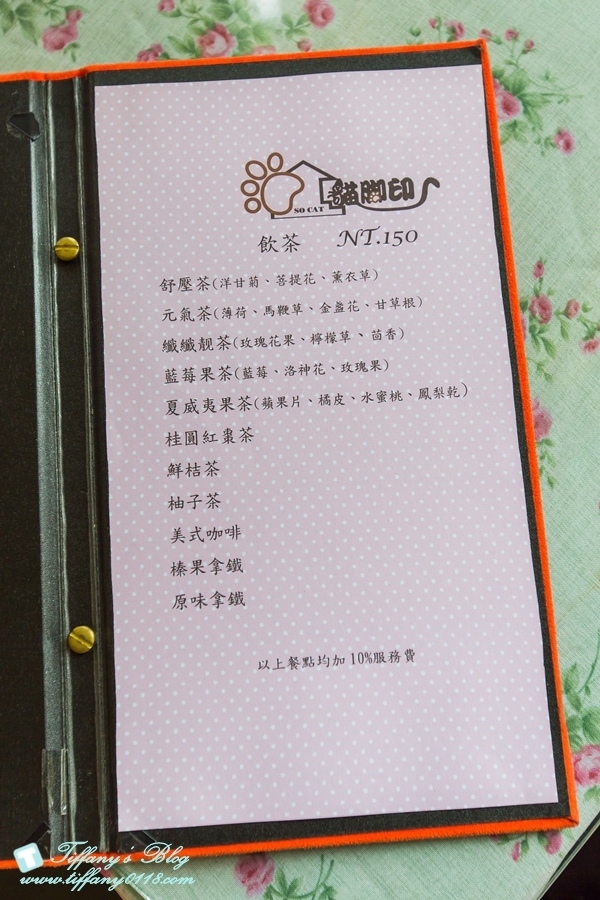 貓腳印
SO CAT
飲茶 NT.150
舒壓茶(洋甘菊、菩提花、薰衣草)
元氣茶(薄荷、馬鞭草、金盞花、甘草根)
纖纖靚茶(玫瑰花果、檸檬草、茴香)
藍莓果茶(藍莓、洛神花、玫瑰果)
夏威夷果茶(蘋果片、橘皮、水蜜桃、鳳梨乾)
桂圓紅棗茶
鮮桔茶
柚子茶
美式咖啡
榛果拿鐵
原味拿鐵
以上餐點均加10%服務費
T Tiffany's Blog
www.tiffany0118.com